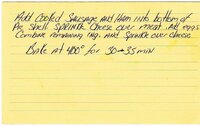 Add cooled sausage and ham into bottom of
Pie Shell Sprinkle cheese over meat. Add eggs
Combine remaining ing. and sprinkle over cheese
Bake at 400° for 30→35 min